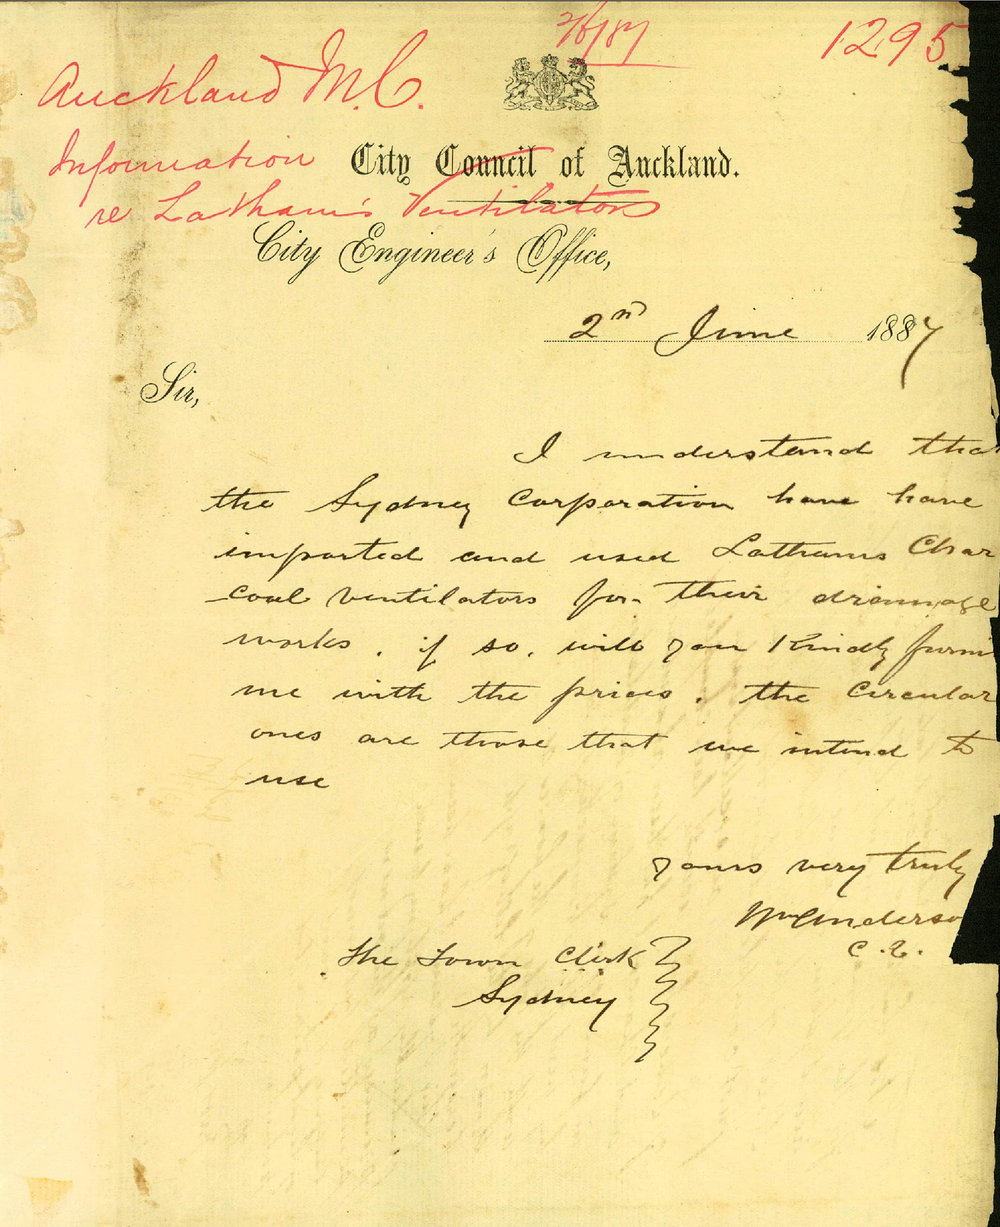 2/6/87
1295
Auckland M.C.
Information
re Latham's Ventilators
City Council of Auckland.
City Engineer's Office,
2nd June 1887
Sir,
I understand that
the Sydney Corporation have have
imported and used Lathams Char
coal ventilators for their drainage
works. if so. will you kindly furni
me with the prices. the circular
ones are those that we intend to
use
yours very truly
Wm Anderso
C.E.
The Town Clerk
Sydney